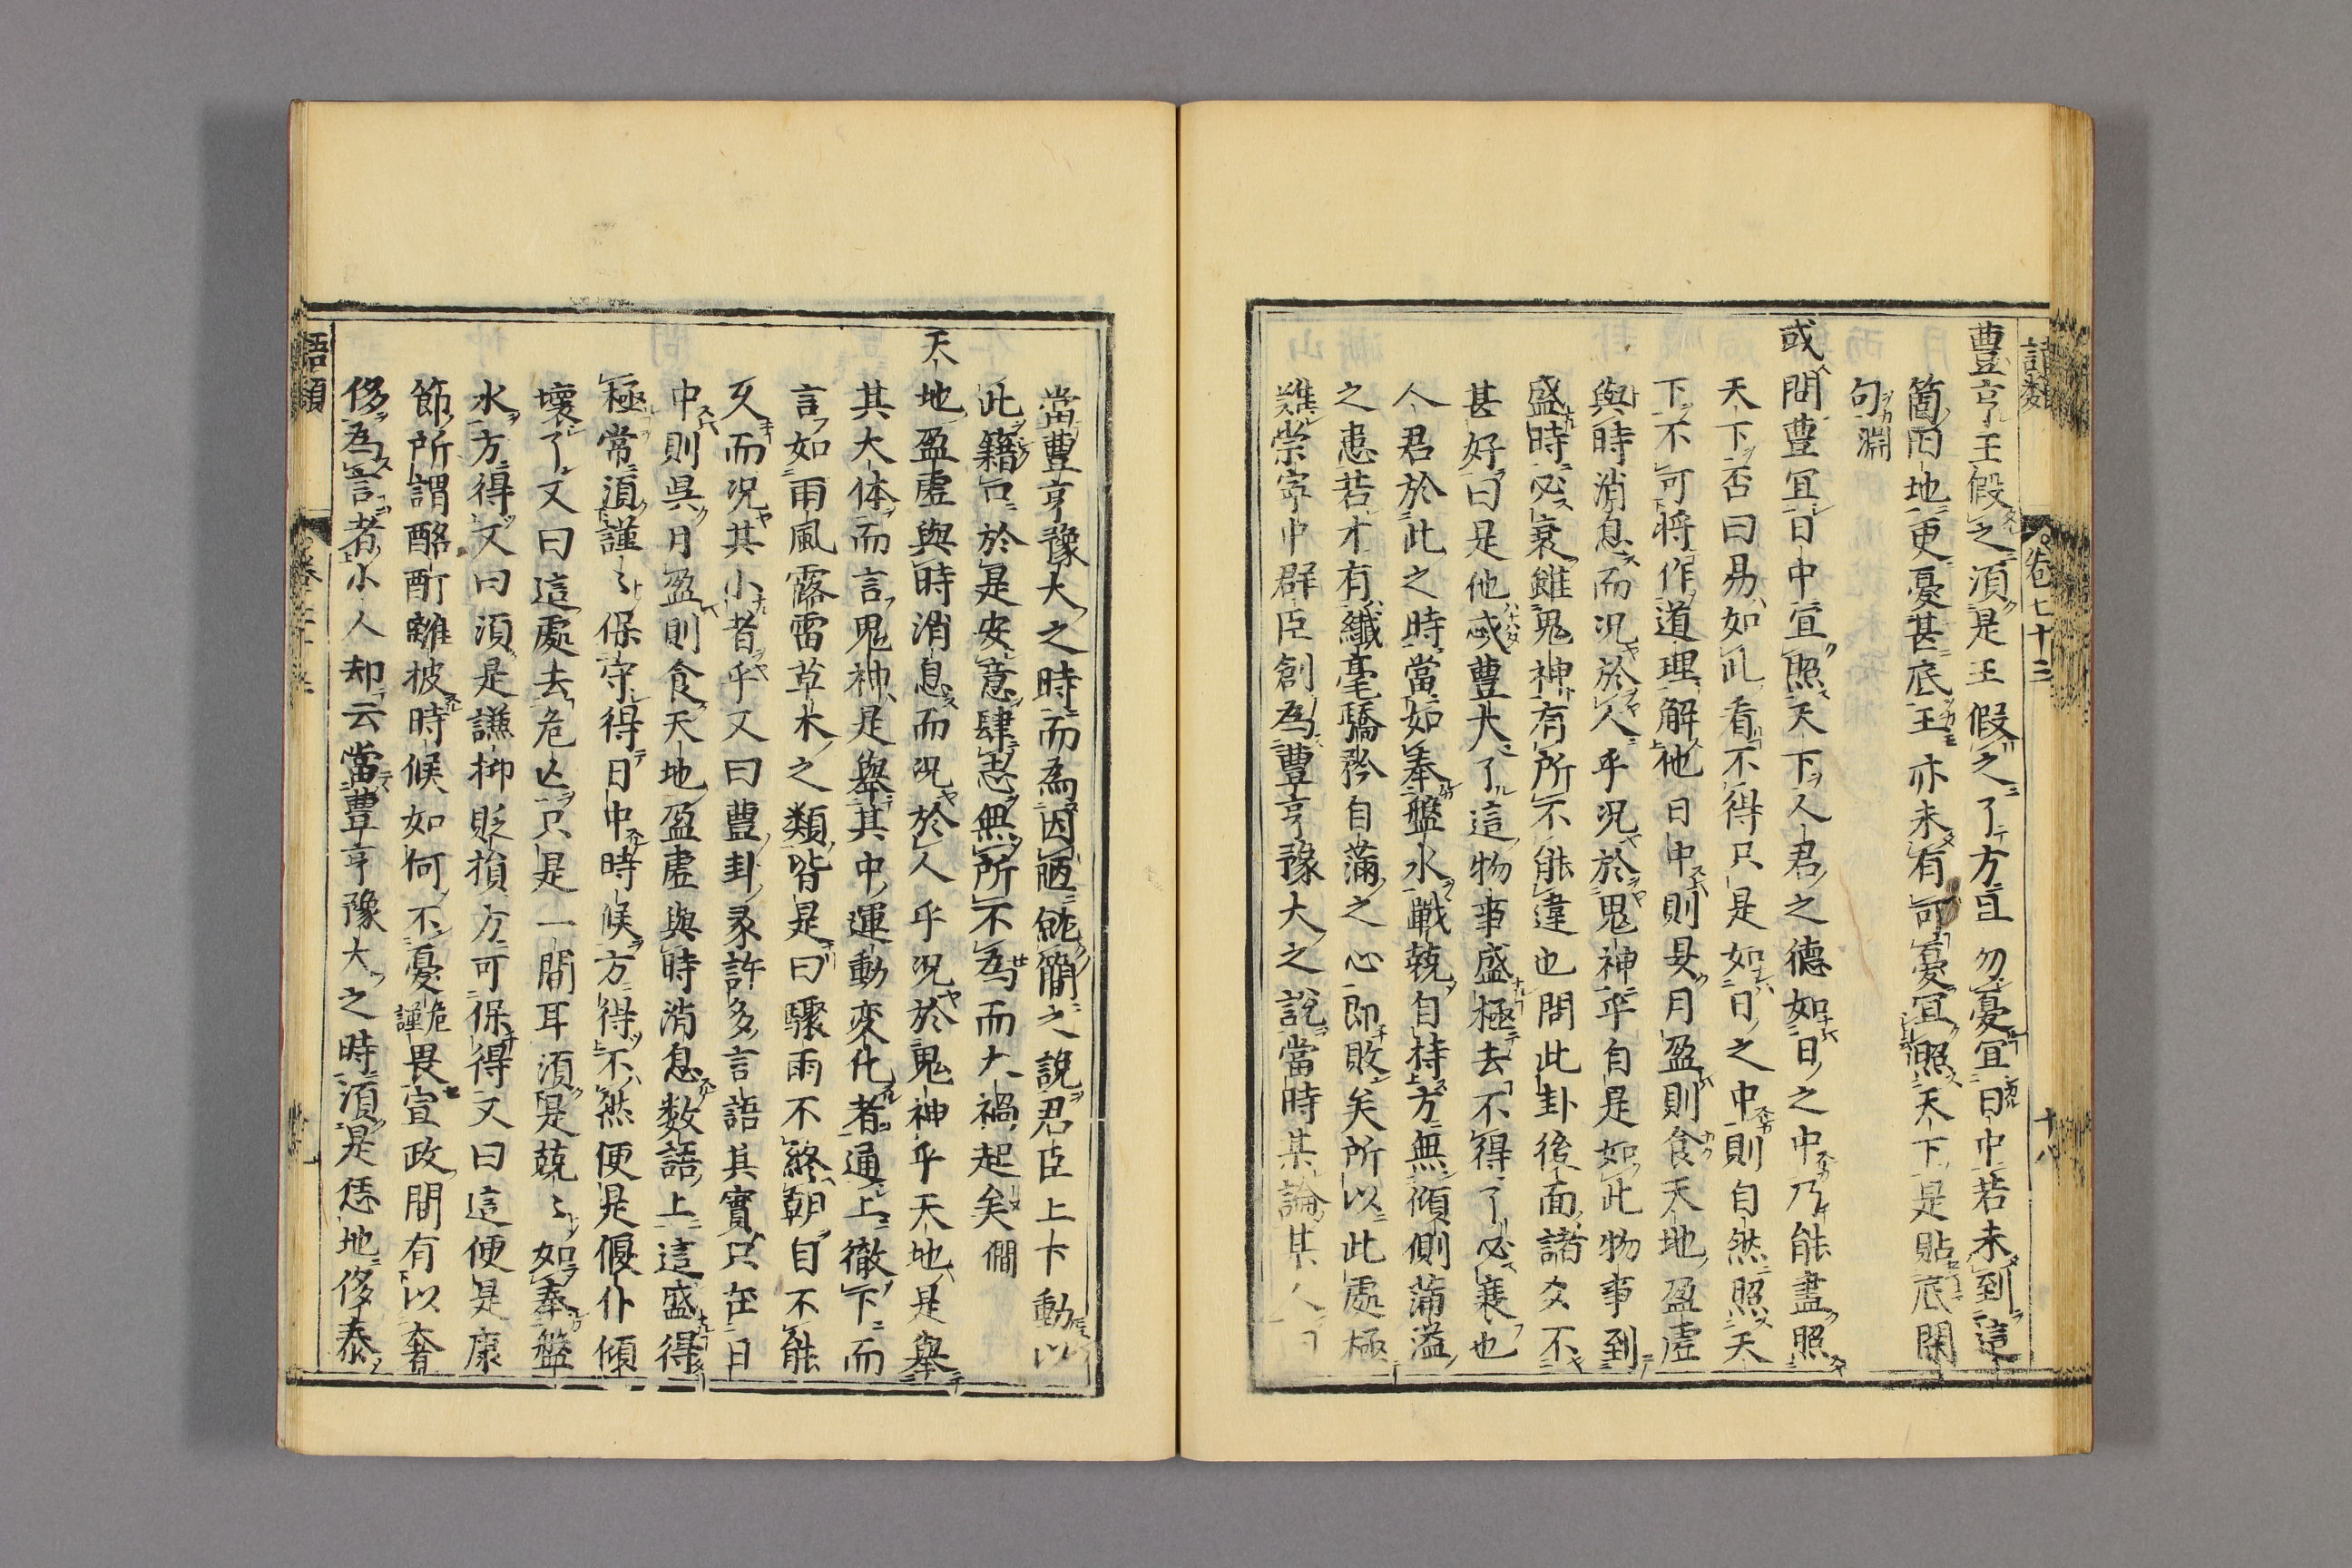 豊亨王假之湏是王假之了方且勿憂宜日中若未到這
箇田地更憂甚底王亦未有可憂宜照天下是貼底閑
句淵
或問豊宜日中宜照天下人君之德如日之中乃能盡照
天下否曰昜如此看不得只是如日之中則自然照天
下不可将作道理解他日中則昃月盈則食天地盈虛
與時消息而况於人乎况於鬼神乎自是如此物事到
盛時必衰雖鬼神有所不能違也問此卦後面諸爻不
甚好曰是他忒豊大了這物事盛極去不得了必衰也
人君於此之時當如奉盤水戰兢自持方無傾側滿溢
之患若才有纖毫驕矜自滿之心即敗矣所以此處極
難崇寧中群臣創為豊亨豫大之說當時某論某人曰
當豊亨豫大之時而為因陋就簡之說君臣上下動以
此籍口於是安意肆志無所不為而大禍起矣僩
天地盈虛與時消息而况於人乎况於鬼神乎天地是舉
其大体而言鬼神是舉其中運動变化者通上徹下而
言如雨風露雷草木之類皆是曰驟雨不終朝自不能
乆而况其小者乎又曰豊卦彖許多言語其實只在日
中則昃月盈則食天地盈虛與時消息数語上這盛得
極常湏謹〻保守得日中時候方得不然便是偃仆傾
壞了又曰這處去危亡只是一間耳湏是兢〻如奉盤
水方得又曰湏是謙抑貶損方可保得又曰這便是康
節所謂酩酊離披時候如何不憂危謹畏宣政間有以奢
侈為言者小人却云當豊亨豫大之時湏是恁地侈泰
語類
卷七十三
十八
語類